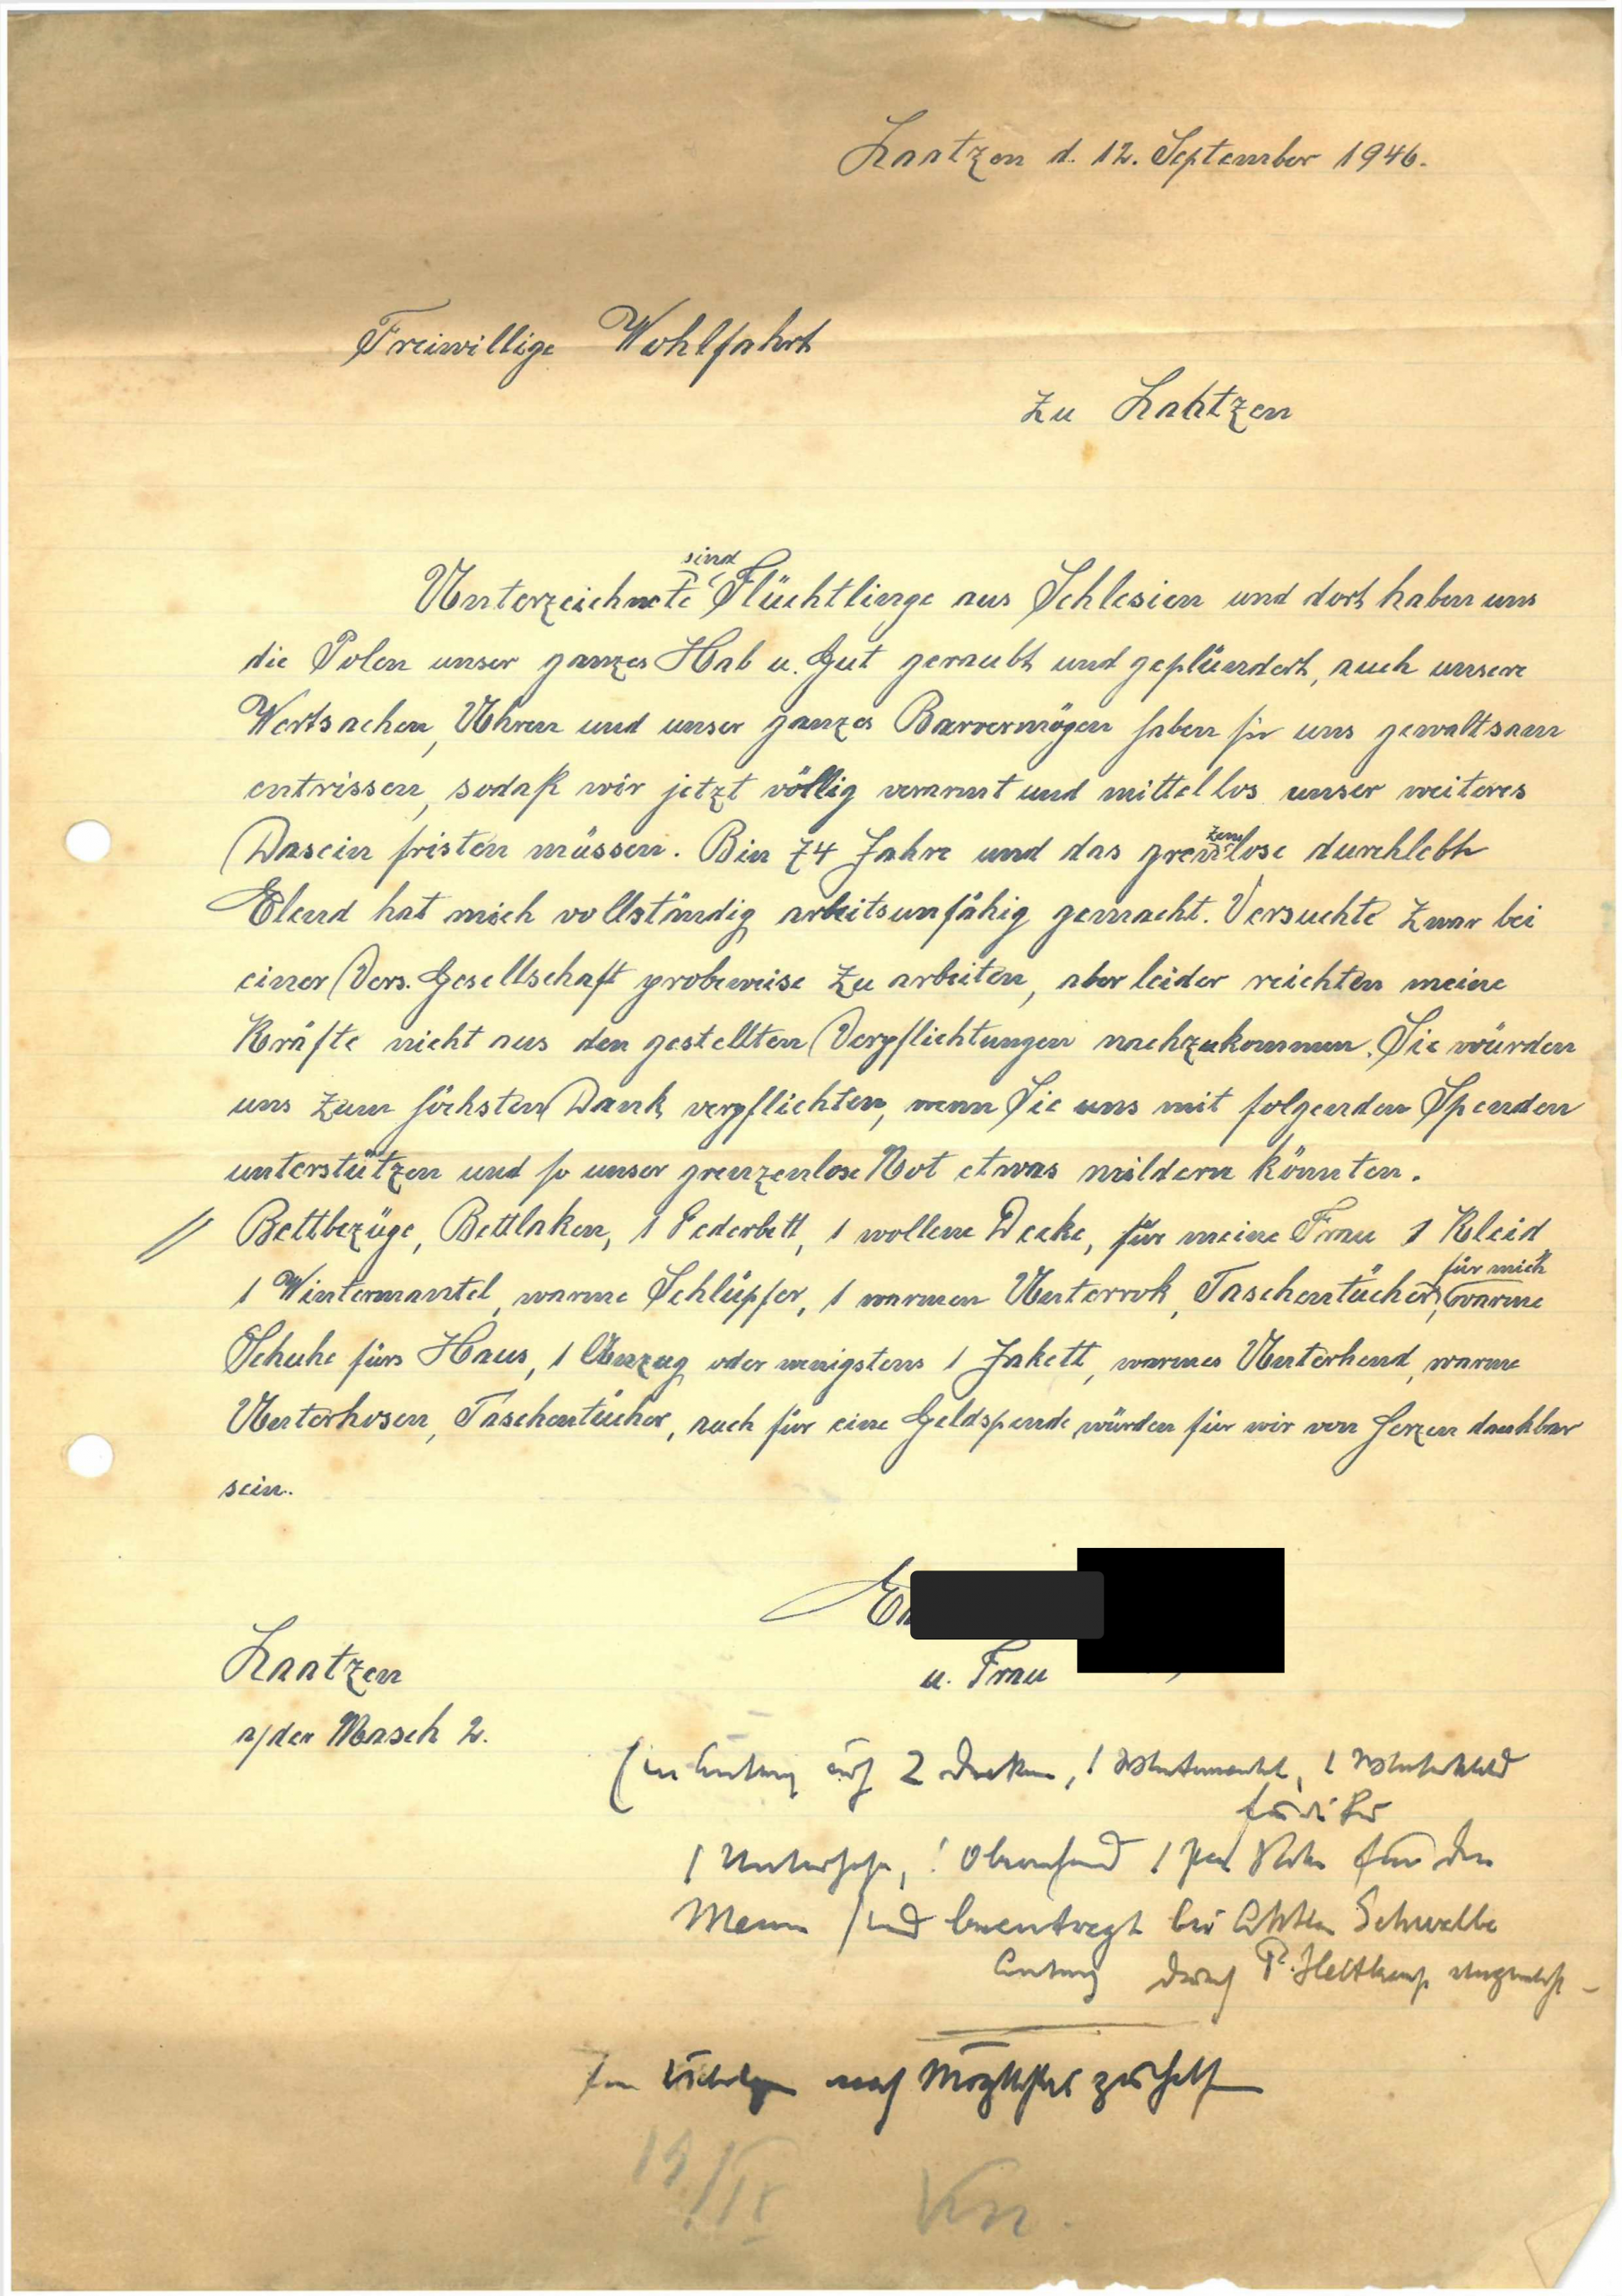 Laatzen d. 12. September 1946.
Freiwillige Wohlfahrt
zu Laatzen
sind
Unterzeichnete Flüchtlinge aus Schlesien und dort haben uns
die Polen unser ganzes Hab u. Gut geraubt und geplündert, auch unsere
Wertsachen, Uhren und unser ganzes Barvermögen haben sie uns gewaltsam
entrissen, sodaß wir jetzt völlig verarmt und mittellos unser weiteres
Dasein fristen müssen. Bin 74 Jahre und das grenzenlose durchlebte
Elend hat mich vollständig arbeitsunfähig gemacht. Versuchte zwar bei
einer Vers. Gesellschaft probeweise zu arbeiten, aber leider reichten meine
Kräfte nicht aus den gestellten Verpflichtungen nachzukommen. Sie würden
uns zum höchsten Dank verpflichten, wenn Sie uns mit folgenden Spenden
unterstützen und so unser grenzenlose Not etwas mildern könnten.
// Bettbezüge, Bettlaken, 1 Federbett, 1 wollene Decke, für meine Frau 1 Kleid
für mich
1 Wintermantel, warme Schlüpfer, 1 warmen Unterrok, Taschentücher, warme
Schuhe fürs Haus, 1 Anzug oder wenigstens 1 Jakett, warmes Unterhemd, warme
Unterhosen, Taschentücher, auch für eine Geldspende würden für wir von Herzen dankbar
sein.
u. Frau
Laatzen
a/der Masch 2.
Ein Antrag auf 2 Decken, 1 Wintermantel, 1 Winterkleid
für die Frau
1 Unterhose, 1 Oberhemd 1 Paar Schuhe für den
Mann sind beantragt bei Schwalbe
Antrag durch P. Heltkamp
nach Möglichkeit zu helfen
19/IX Kn.